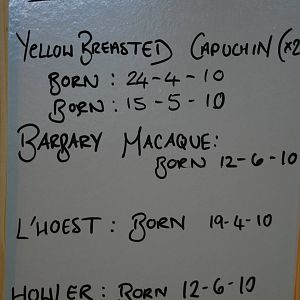 YELLOW BREASTED CAPUCHIN (x2
BORN: 24-4-10
BORN: 15-5-10
BARBARY MACAQUE:
BORN 12-6-10
L'HOEST: BORN 19-4-10
HOWLER: BORN 12-6-10